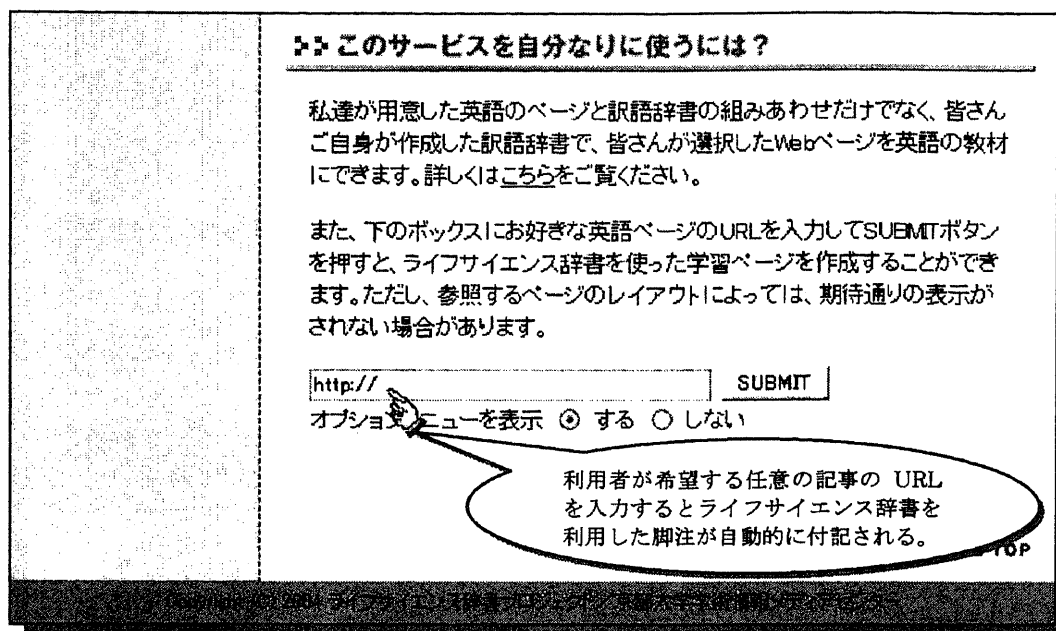 このサービスを自分なりに使うには？
私達が用意した英語のページと訳語辞書の組みあわせだけでなく、皆さん
ご自身が作成した訳語辞書で、皆さんが選択したWebページを英語の教材
にできます。詳しくはこちらをご覧ください。
また、下のボックスにお好きな英語ページのURLを入力してSUBMITボタン
を押すと、ライフサイエンス辞書を使った学習ページを作成することができ
ます。ただし、参照するページのレイアウトによっては、期待通りの表示が
されない場合があります。
http://
SUBMIT
オプション ニューを表示 する しない
利用者が希望する任意の記事の URL
を入力するとライフサイエンス辞書を
利用した脚注が自動的に付記される。
TOP
2004 ライフサイエンス辞書プロジェクト